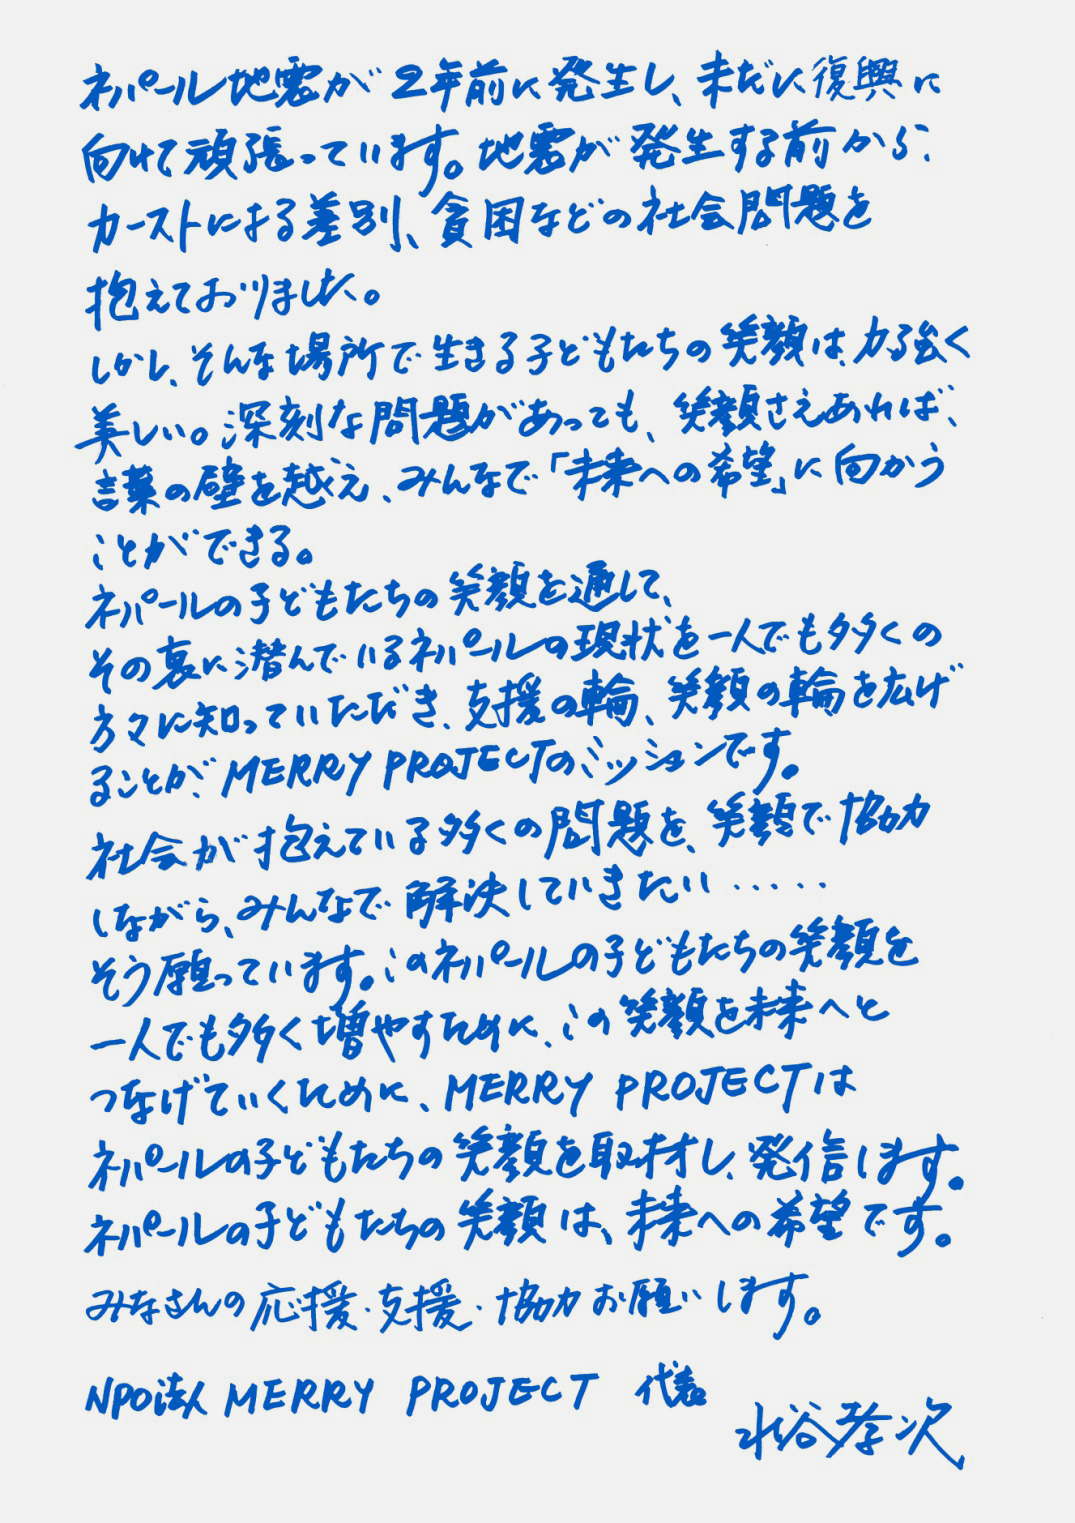 ネパール地震が2年前に発生し、未だに復興に
向けて頑張っています。地震が発生する前から、
カーストによる差別、貧困などの社会問題を
抱えておりました。
しかし、そんな場所で生きる子どもたちの笑顔は、力強く
美しい。深刻な問題があっても、笑顔さえあれば、
言葉の壁を越え、みんなで「未来への希望」に向かう
ことができる。
ネパールの子どもたちの笑顔を通して、
その裏に潜んでいるネパールの現状を一人でも多くの
方々に知っていただき、支援の輪、笑顔の輪を広げ
ることが、MERRY PROJECTのミッションです。
社会が抱えている多くの問題を、笑顔で協力
しながら、みんなで解決していきたい‥‥‥
そう願っています。このネパールの子どもたちの笑顔を
一人でも多く増やすために、この笑顔を未来へと
つなげていくために、MERRY PROJECTは
ネパールの子どもたちの笑顔を取材し、発信します。
ネパールの子どもたちの笑顔は、未来への希望です。
みなさんの応援・支援・協力お願いします。
NPO法人 MERRY PROJECT 代表
水谷孝次